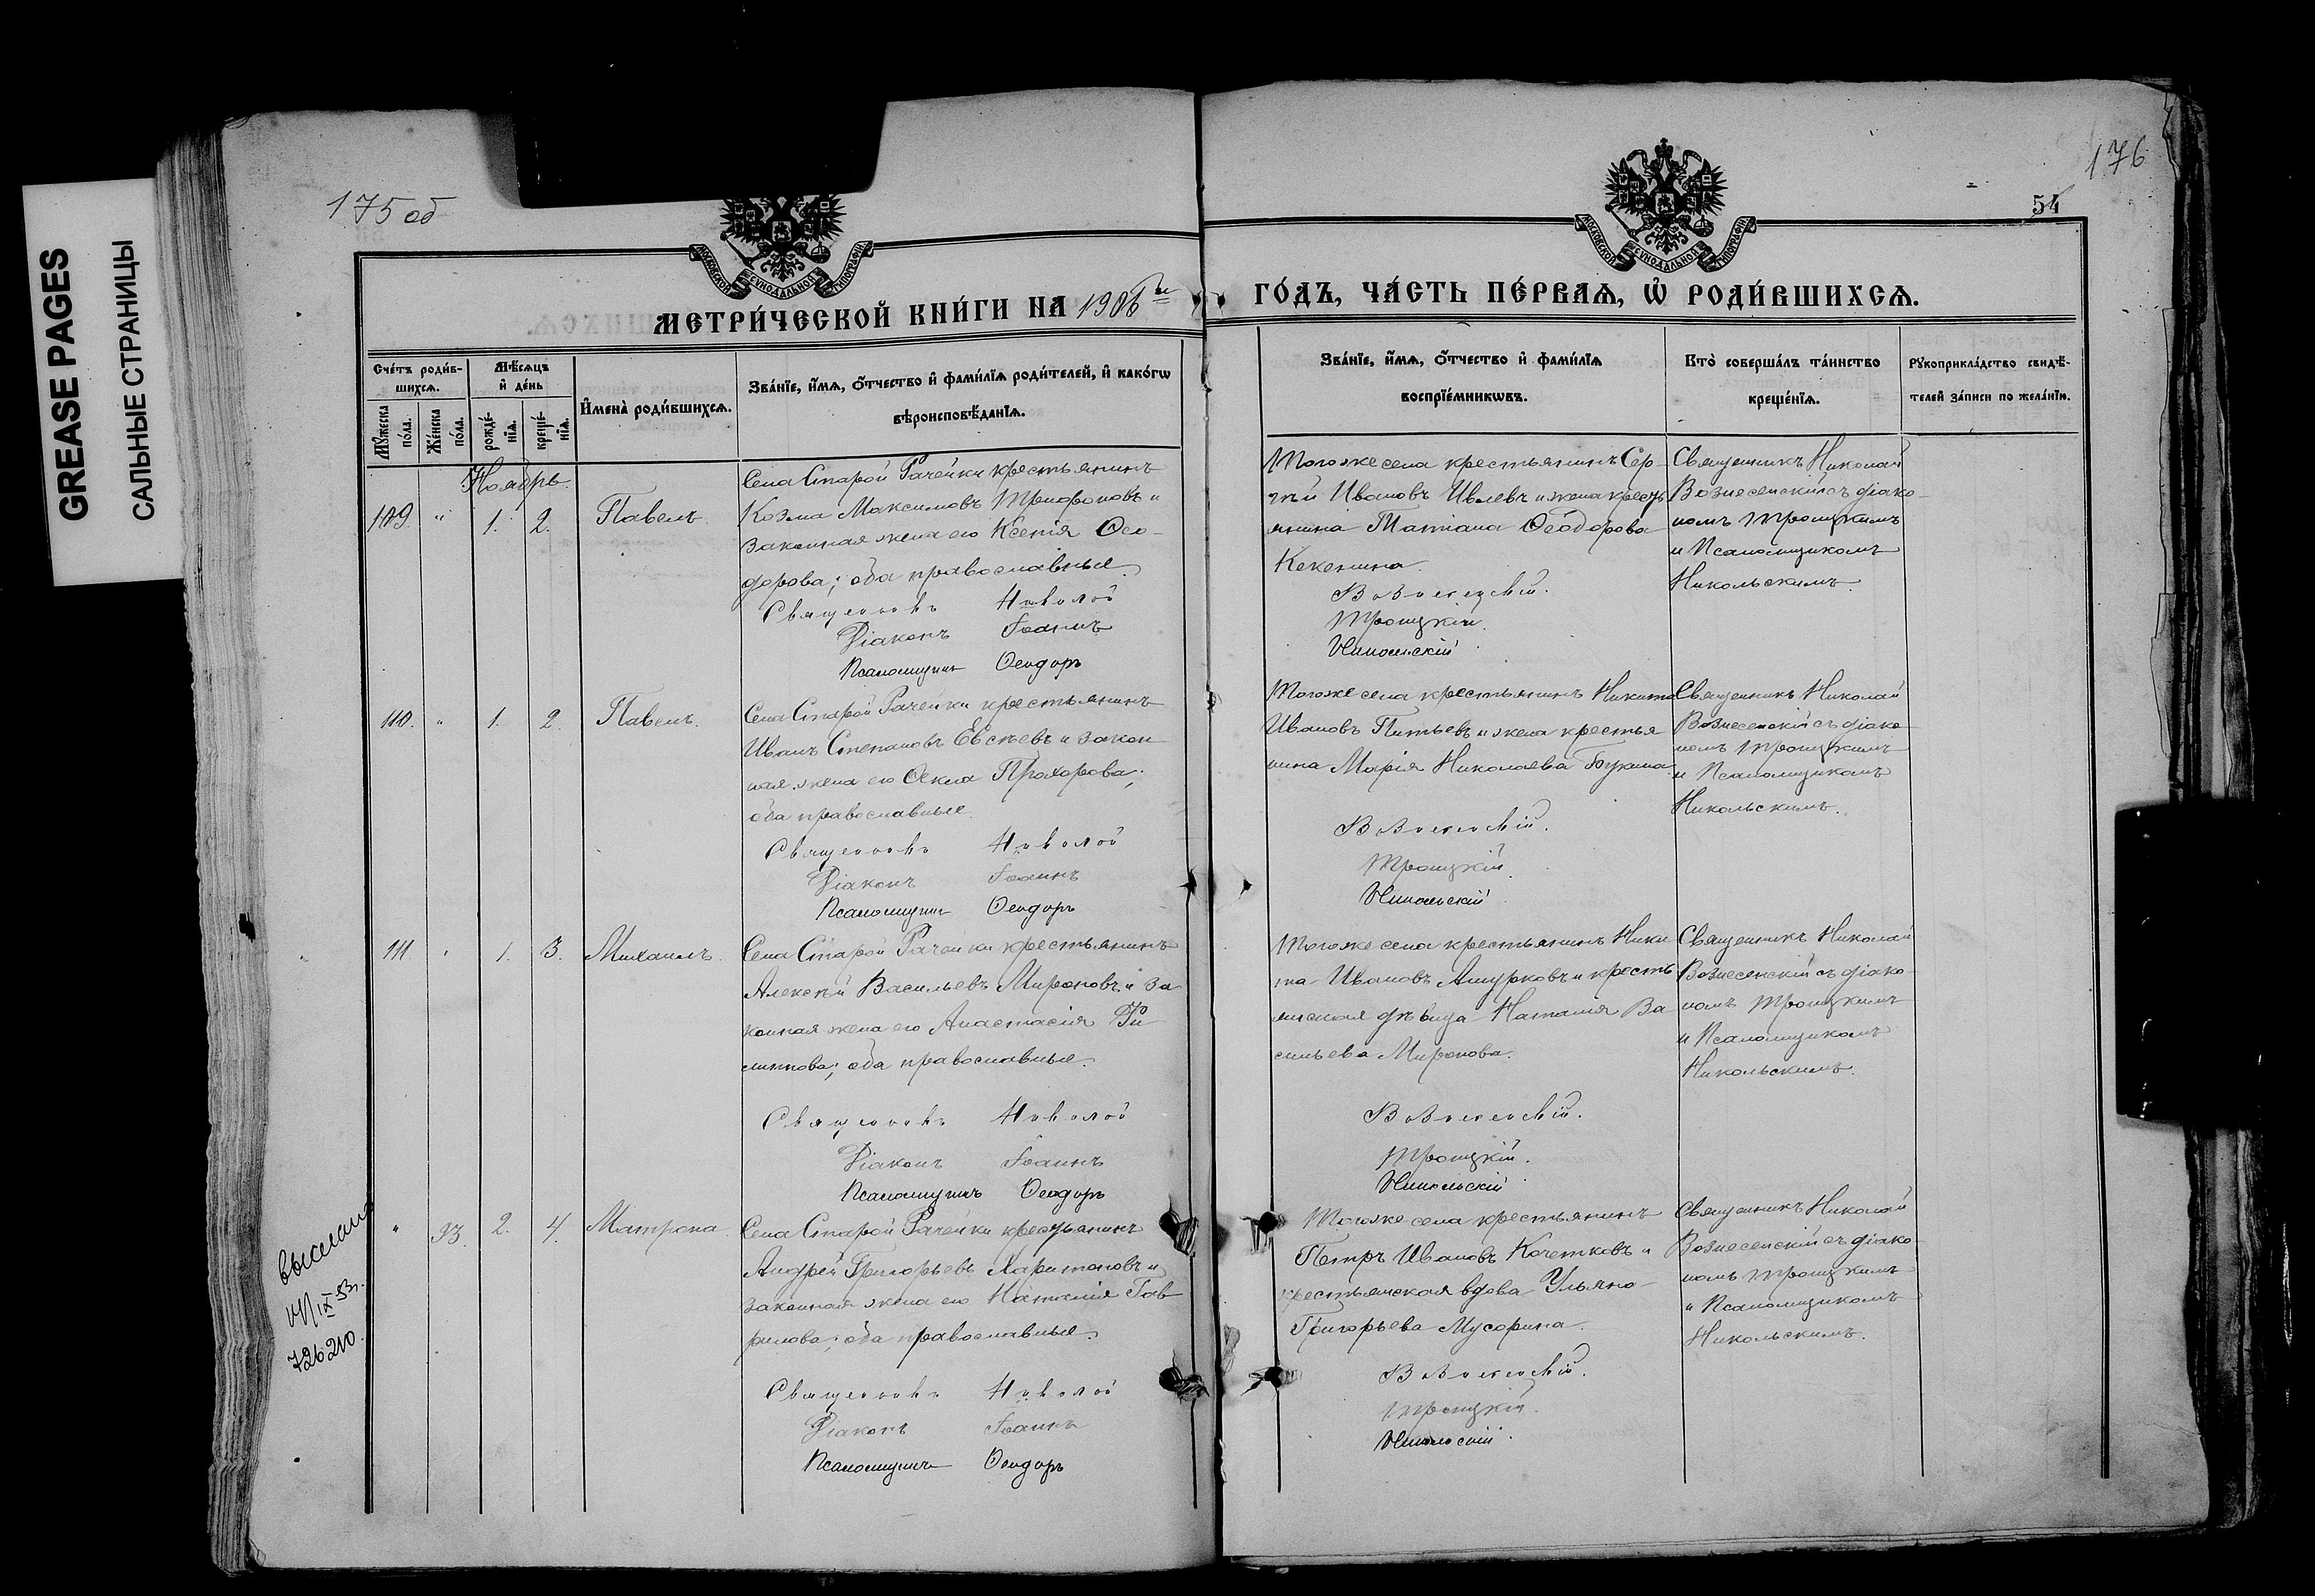 GREASE PAGES
САЛЬНЫЕ СТРАНИЦЫ
175 об
176
54
МОСКОВСКОЙ СѴНОДАЛЬНОЙ ТИПОГРАФІИ
МОСКОВСКОЙ СѴНОДАЛЬНОЙ ТИПОГРАФІИ
МЕТРИ́ЧЕСКОЙ КНИ́ГИ НА 1906 й
ГО́ДЪ, ЧА́СТЬ ПЕ́РВАѦ, Ѡ҆ РОДИ́ВШИХСѦ.
Сче́тъ роди́в-
шихсѧ.
Мѣ́сѧцъ
и҆ де́нь
Мꙋ́жеска
по́ла.
Же́нска
по́ла.
рожде́-
нїѧ.
креще́-
нїѧ.
И҆мена̀ роди́вшихсѧ.
Зва́нїе, и҆́мѧ, ѻ҆́тчество и҆ фами́лїѧ роди́телей, и҆ како́гѡ
вѣроисповѣ́данїѧ.
Зва́нїе, и҆́мѧ, ѻ҆́тчество и҆ фами́лїѧ
воспрїе́мникѡвъ.
Кто̀ соверша́лъ та́инство
креще́нїѧ.
Рꙋкоприкла́дство свидѣ́-
телей за́писи по жела́нїю.
Ноябрь.
109. " 1. 2. Павелъ.
Села Старой Рачейки крестьянинъ
Козма Максимовъ Трифоновъ и
законная жена его Ксенія Ѳео-
дорова; оба православные.
Священникъ Николай
Діаконъ Іоаннъ
Псаломщикъ Ѳеодоръ
Тогоже села крестьянинъ Сер-
гѣй Ивановъ Ивлевъ и жена кресть
янина Татіана Ѳеодорова
Кекенина.
Вознесенскій.
Троицкій.
Никольскій
Священникъ Николай
Вознесенскій съ діако-
номъ Троицкимъ
и Псаломщикомъ
Никольскимъ.
110. " 1. 2. Павелъ.
Села Старой Рачейки крестьянинъ
Иванъ Степановъ Евсѣевъ и закон
ная жена его Ѳекла Прохорова;
оба православные.
Священникъ Николай
Діаконъ Іоаннъ
Псаломщикъ Ѳеодоръ
Тогоже села крестьянинъ Никита
Ивановъ Питьевъ и жена крестья
нина Марія Николаева Букина.
Вознесенскій.
Троицкій.
Никольскій
Священникъ Николай
Вознесенскій съ діако
номъ Троицкимъ
и Псаломщикомъ
Никольскимъ.
111. " 1. 3. Михаилъ.
Села Старой Рачейки крестьянинъ
Алексѣй Васильевъ Мироновъ и за
конная жена его Анастасія Фи
липпова; оба православные.
Священникъ Николай
Діаконъ Іоаннъ
Псаломщикъ Ѳеодоръ
Тогоже села крестьянинъ Ники
та Ивановъ Ашурковъ и кресть
янская дѣвица Наталія Ва
сильева Миронова.
Вознесенскій.
Троицкій.
Никольскій
Священникъ Николай
Вознесенскій съ діако
номъ Троицкимъ
и Псаломщикомъ
Никольскимъ.
" 93. 2. 4. Матрона.
Села Старой Рачейки крестьянинъ
Андрей Григорьевъ Харитоновъ и
законная жена его Наталія Гав
рилова; оба православные.
Священникъ Николай
Діаконъ Іоаннъ
Псаломщикъ Ѳеодоръ
Тогоже села крестьянинъ
Петръ Ивановъ Кочетковъ и
крестьянская вдова Ульяна
Григорьева Мусорина.
Вознесенскій.
Троицкій.
Никольскій
Священникъ Николай
Вознесенскій съ діако-
номъ Троицкимъ
и Псаломщикомъ
Никольскимъ.
выслана